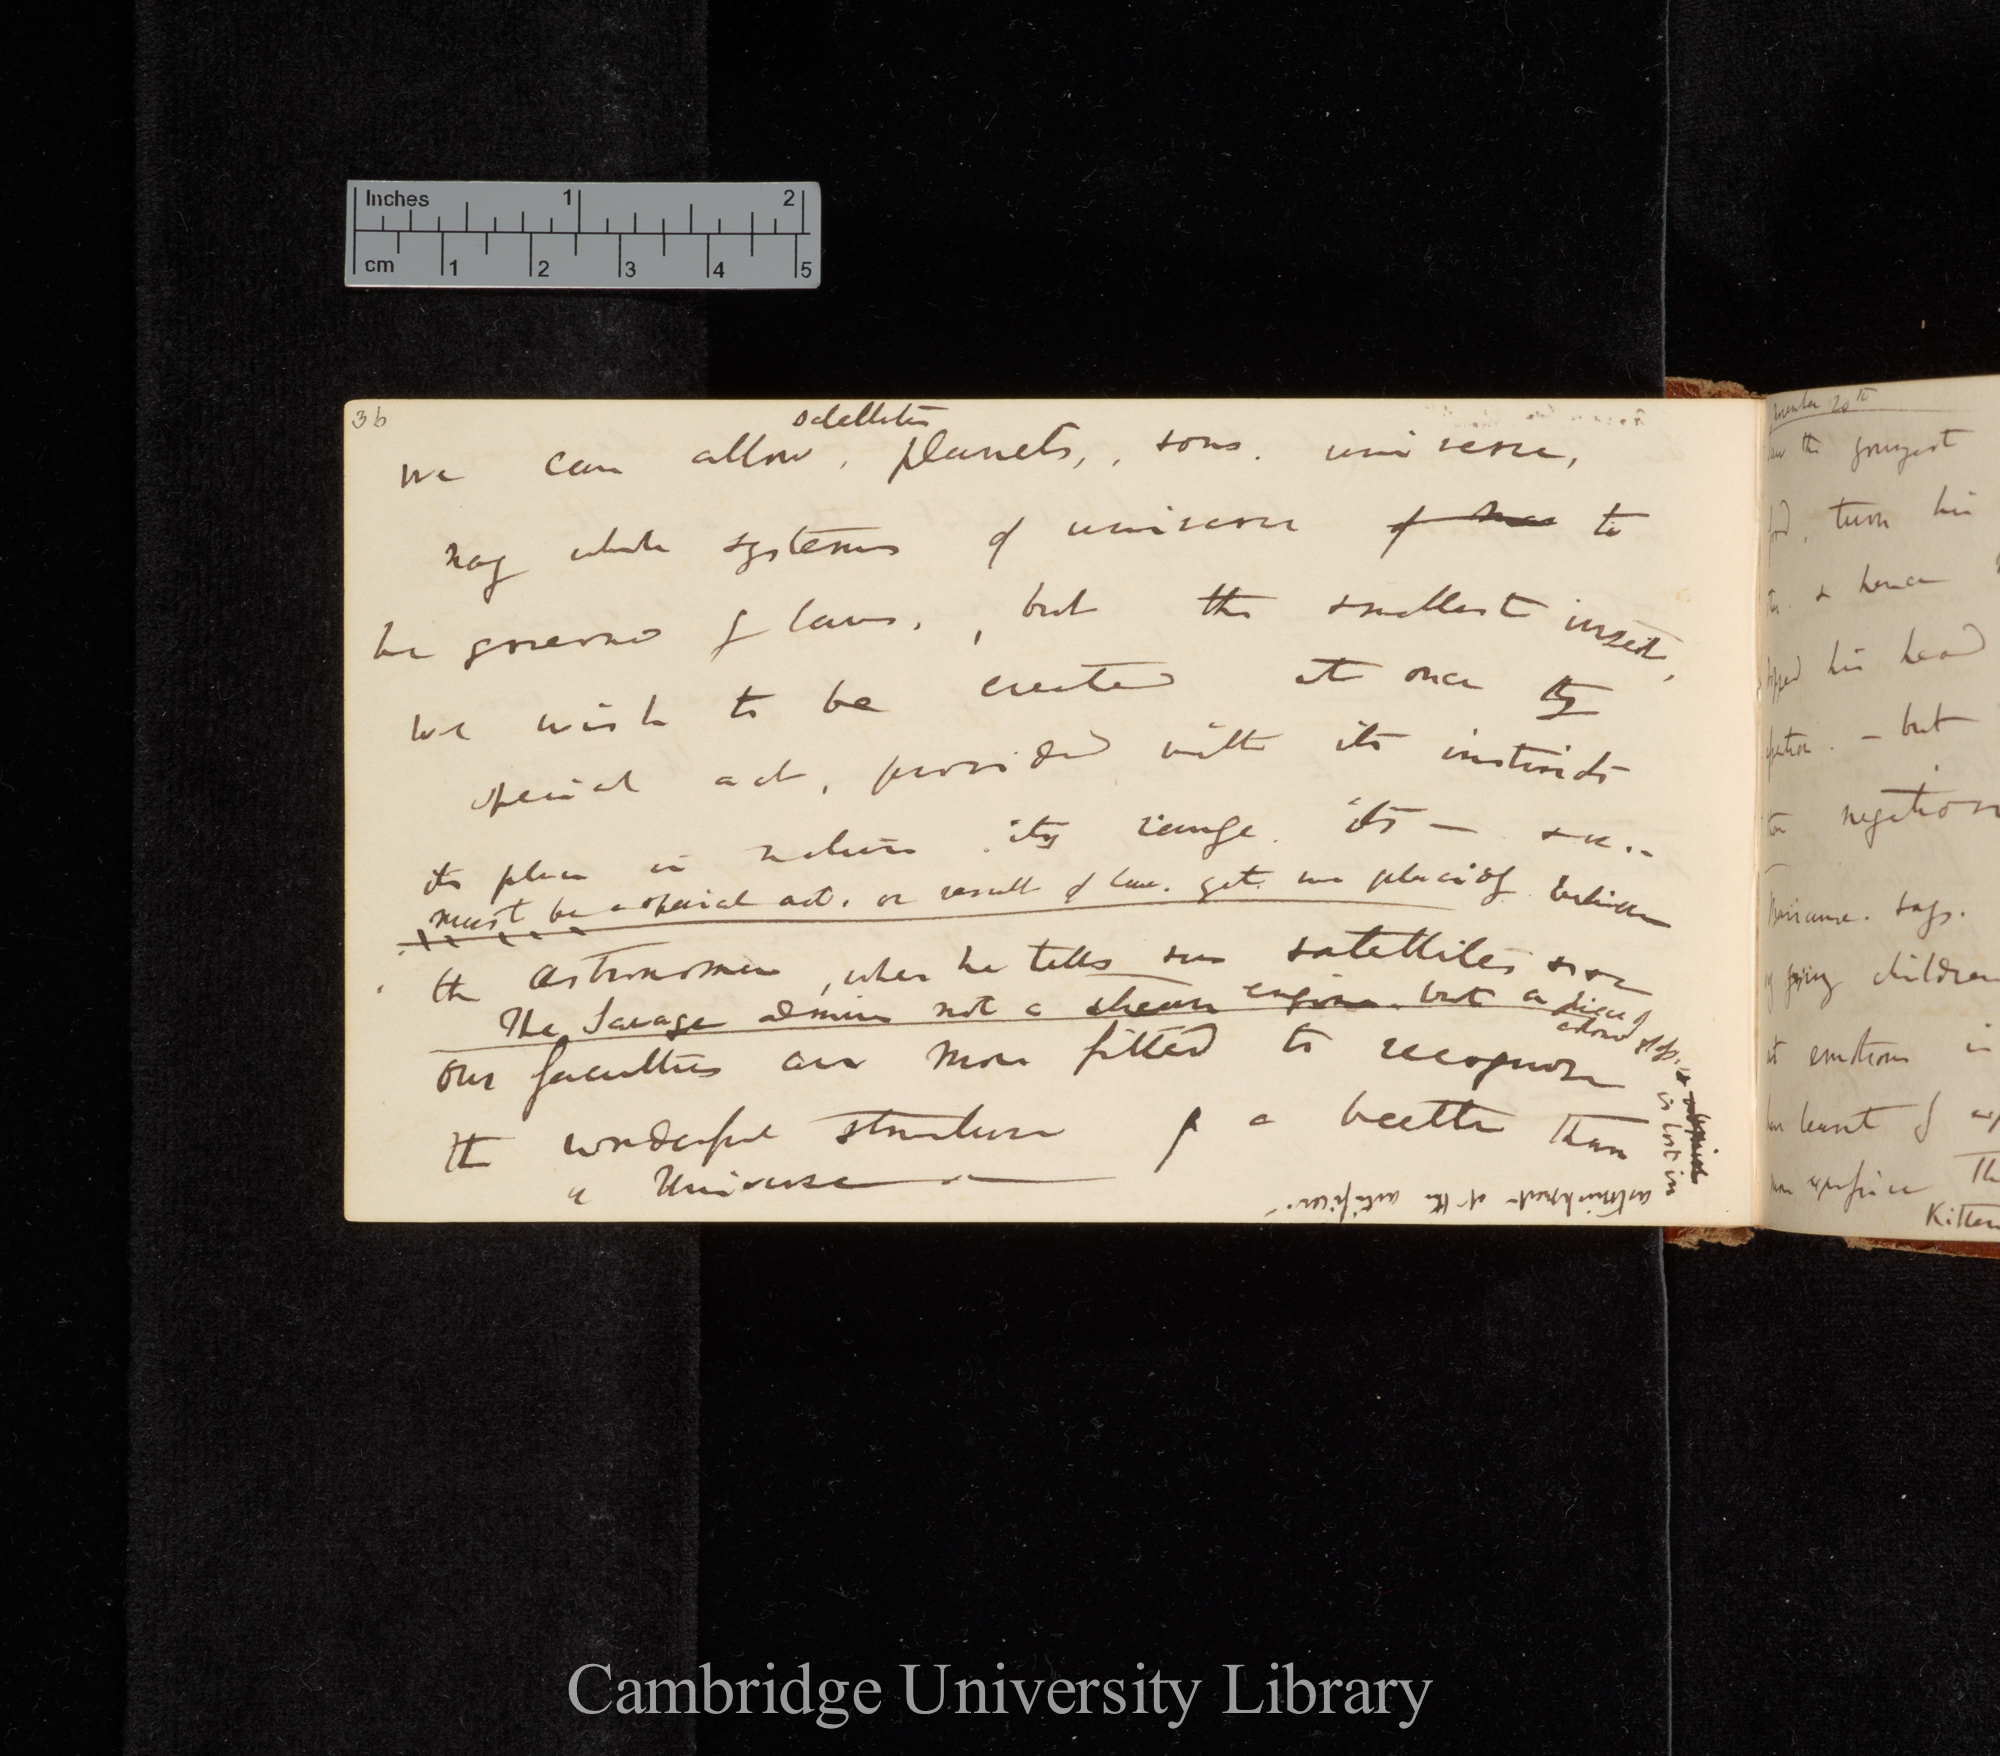 Inches 1 2
cm 1 2 3 4 5
36
satellites
we can allow, planets, suns, universe,
nay whole systems of universe of man to
be governed by laws, but the smallest insect,
we wish to be created at once by
special act, provided with its instincts
its place in nature. its range. its — &c.—
must be a special act. or result of laws. yet we placidly believe
the astronomer, when he tells us satellites &c &c
The Savage admires not a steam engine, but a piece of
coloured glass
is lost in
astonishment at the artificer.
our faculties are more fitted to recognize
the wonderful structure of a beetle than
a Universe —
20th
the youngest
turn his
& hence
his head
— but
negation
says.
children
emotions in
least of
Kitten
Cambridge University Library